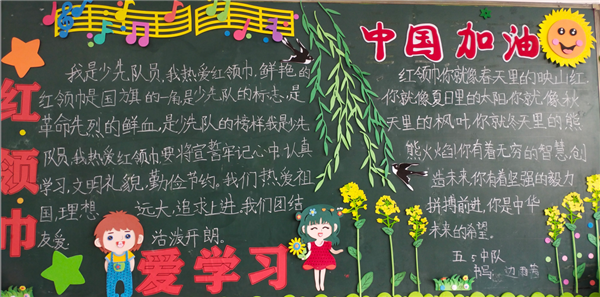 红领巾
我是少先队员,我热爱红领巾,鲜艳的
红领巾是国旗的一角是少先队的标志,是
革命先烈的鲜血,是少先队的榜样我是少先
队员,我热爱红领巾要将宣誓牢记心中,认真
学习,文明礼貌,勤俭节约。我们热爱祖
国,理想 远大,追求上进,我们团结
友爱 活泼开朗。
爱学习
中国加油
红领巾你就像春天里的映山红
你就像夏日里的太阳,你就像秋
天里的枫叶,你就冬天里的熊
熊火焰!你有着无穷的智慧,创
造未来,你有着坚强的毅力
拼搏前进,你是中华
未来的希望。
五5中队
书写:边